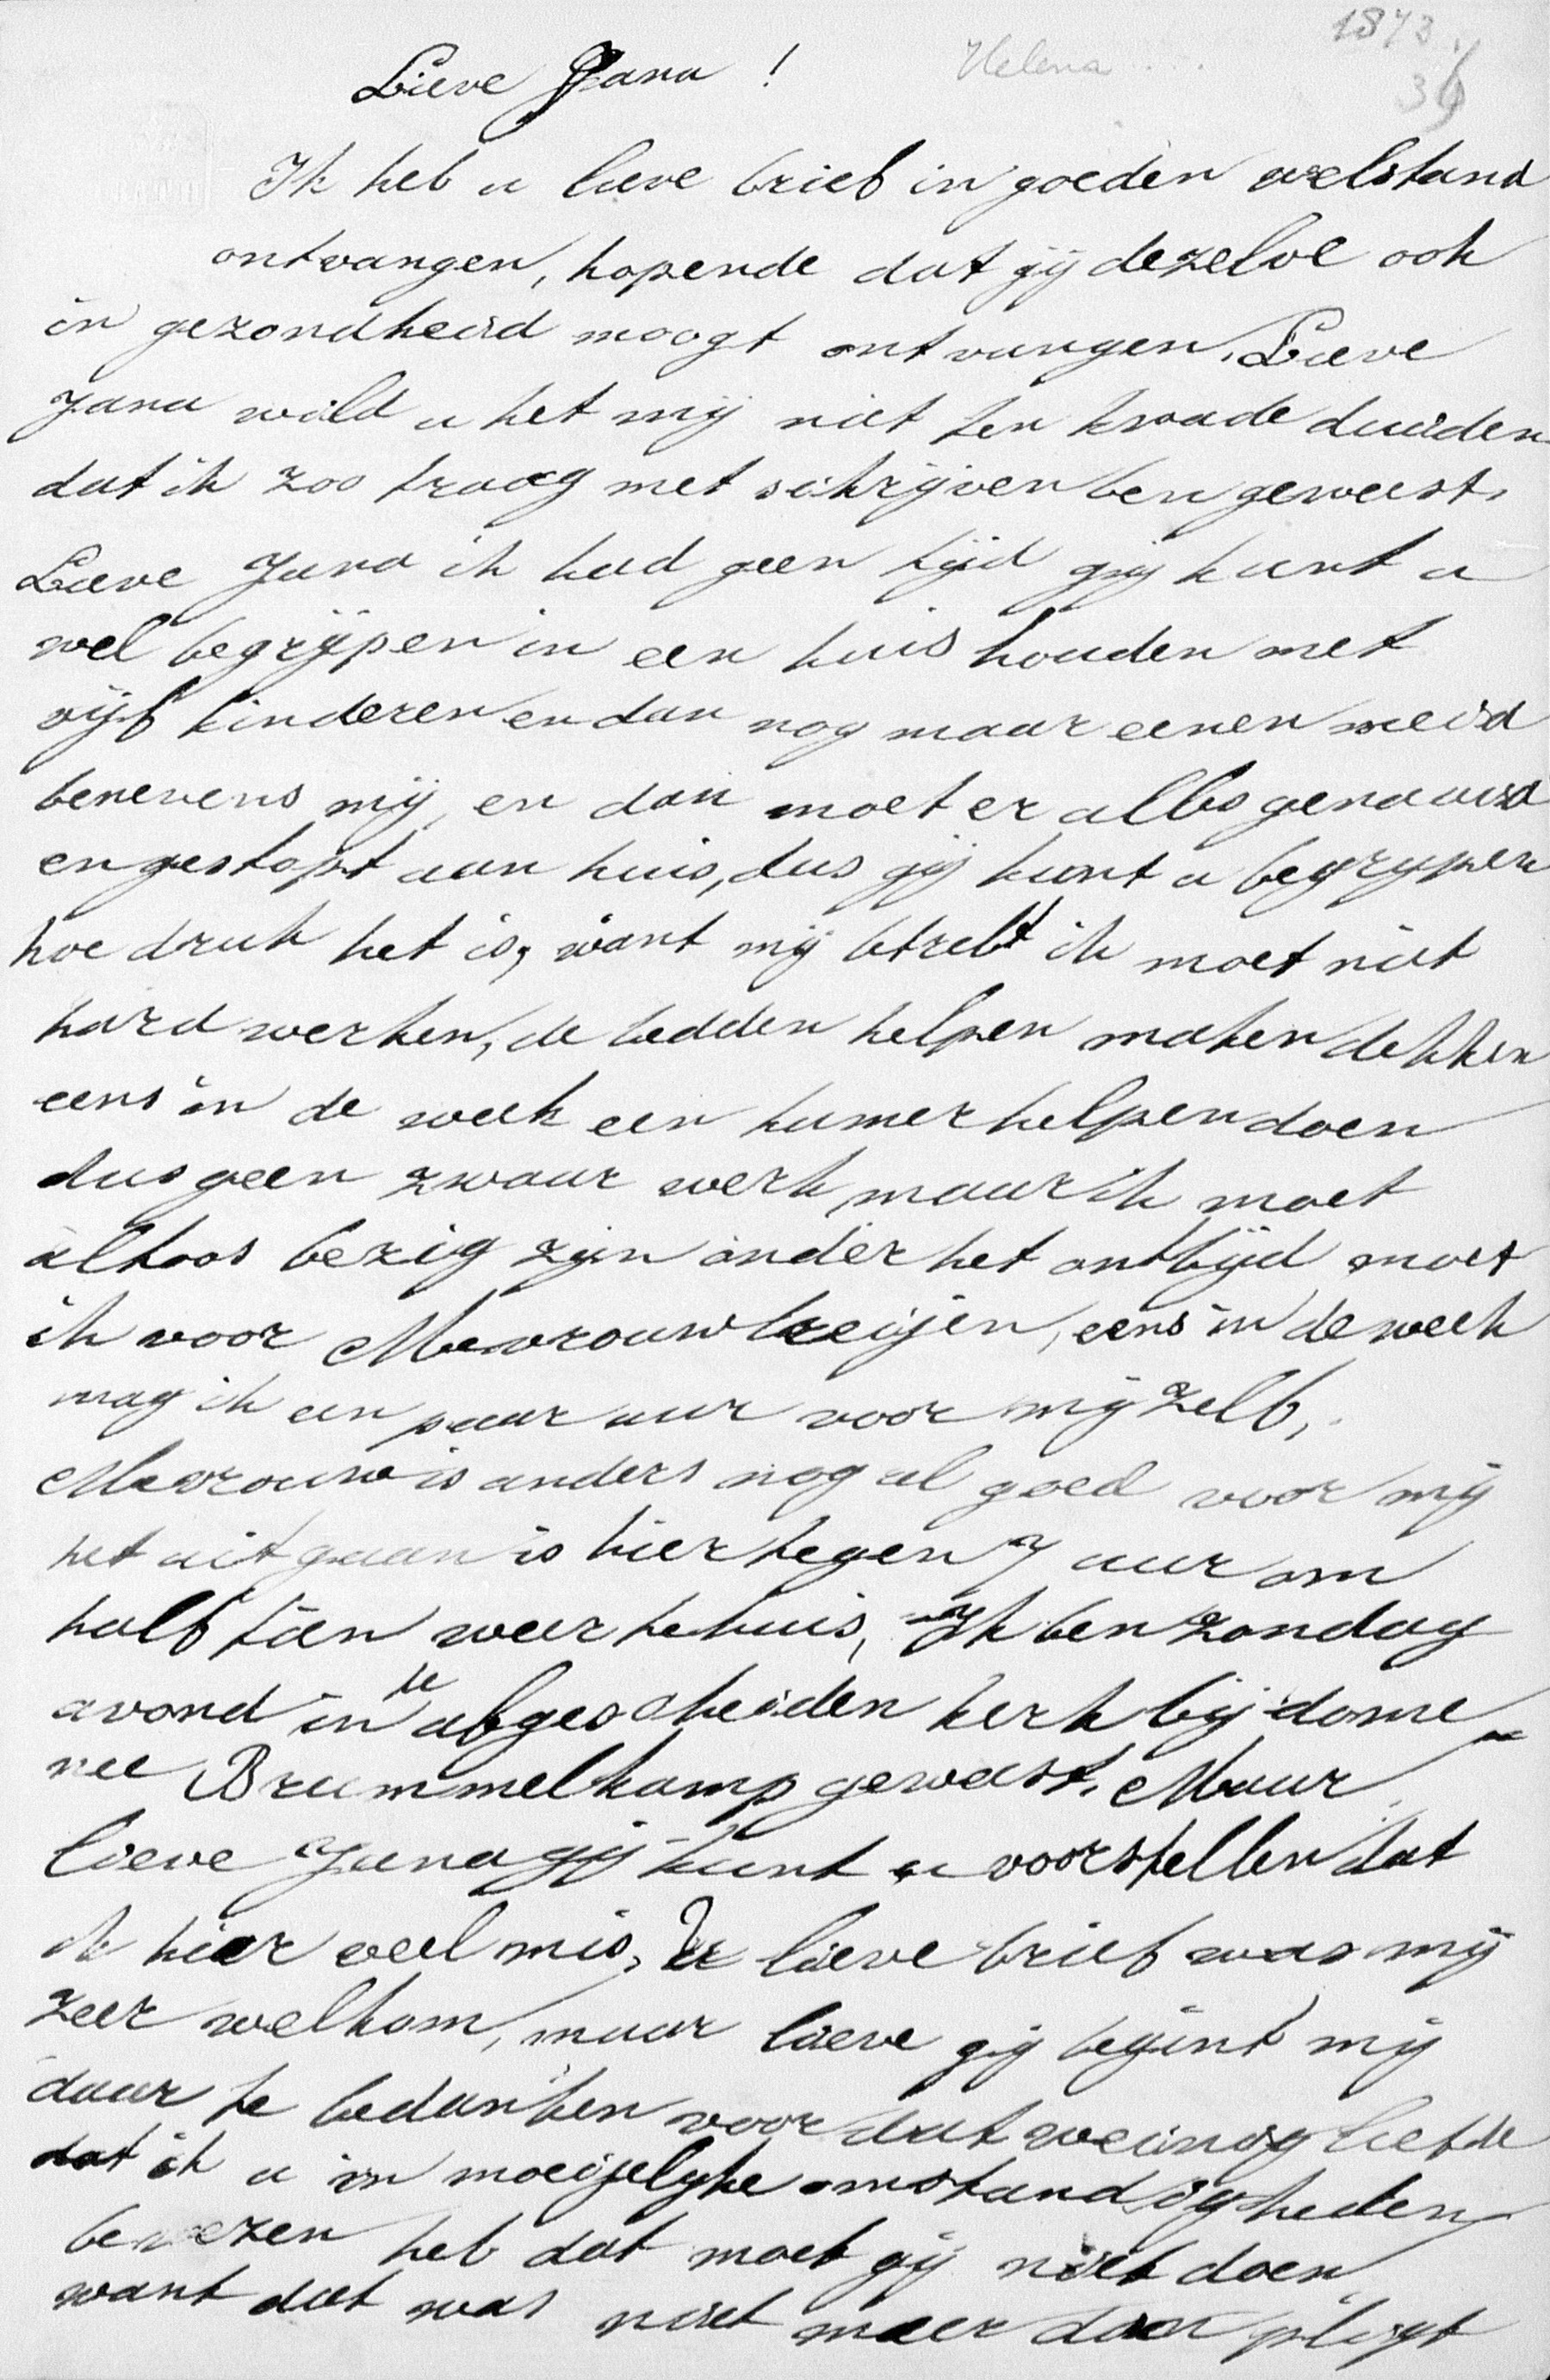 1873.
Helena ....
36
Lieve Jana !
Ik heb u lieve brief in goeden welstand
ontvangen, hopende dat gij dezelve ook
in gezondheid moogt ontvangen. Lieve
Jana wild u het mij niet ten kwade duiden
dat ik zoo traag met schrijven ben geweest,
Lieve Jana ik had geen tijd gij kunt u
wel begrijpen in een huis houden met
vijf kinderen en dan nog maar eenen meid
benevens mij, en dan moet er alles genaaid
en gestopt aan huis, dus gij kunt u begrypen
hoe druk het is, want mij betreft ik moet niet
hard werken, de bedden helpen maken dekken
eens in de week een kamer helpen doen
dus geen zwaar werk, maar ik moet
altoos bezig zijn onder het ontbijd moet
ik voor Mevrouw breijen, eens in de week
mag ik een paar uur voor mij zelf,
Mevrouw is anders nog al goed voor mij
het uit gaan is hier tegen 7 uur om
half tien weer tehuis, Ik ben zondag
avond in de afgescheiden kerk bij dome
nee Brummelkamp geweest. Maar
lieve Jana gij kunt u voorstellen dat
ik hier veel mis, Uw lieve brief was mij
zeer welkom, maar lieve gij begint mij
daar te bedanken voor dat weinig liefde
dat ik u in moeijelyke omstandigheden
bewezen heb dat moet gij niet doen
want dat was niet meer dan pligt